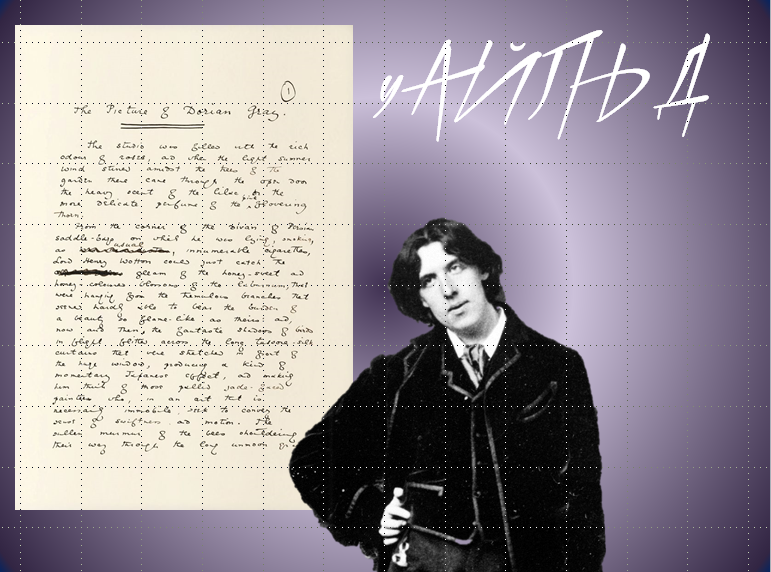 уАЙЛЬД
1
The Picture of Dorian Gray.
The studio was filled with the rich
odour of roses, and when the light summer
wind stirred amidst the trees of the
garden there came through the open door
the heavy scent of the lilac, or the
more delicate perfume of the pink flowering
thorn.
From the corner of the divan of Persian
saddle-bags on which he was lying, smoking,
as usual, innumerable cigarettes,
Lord Henry Wotton could just catch the
gleam of the honey-sweet and
honey-coloured blossoms of the laburnum, that
were hanging from the tremulous branches that
seemed hardly able to bear the burden of
a beauty so flame-like as theirs: and,
now and then, the fantastic shadows of birds
in flight flitted across the long tussore-silk
curtains that were stretched in front of
the huge window, producing a kind of
momentary Japanese effect, and making
him think of those pallid jade-faced
painters who, in an art that is
necessarily immobile, seek to convey the
sense of swiftness and motion. The
sullen murmur of the bees shouldering
their way through the long unmown